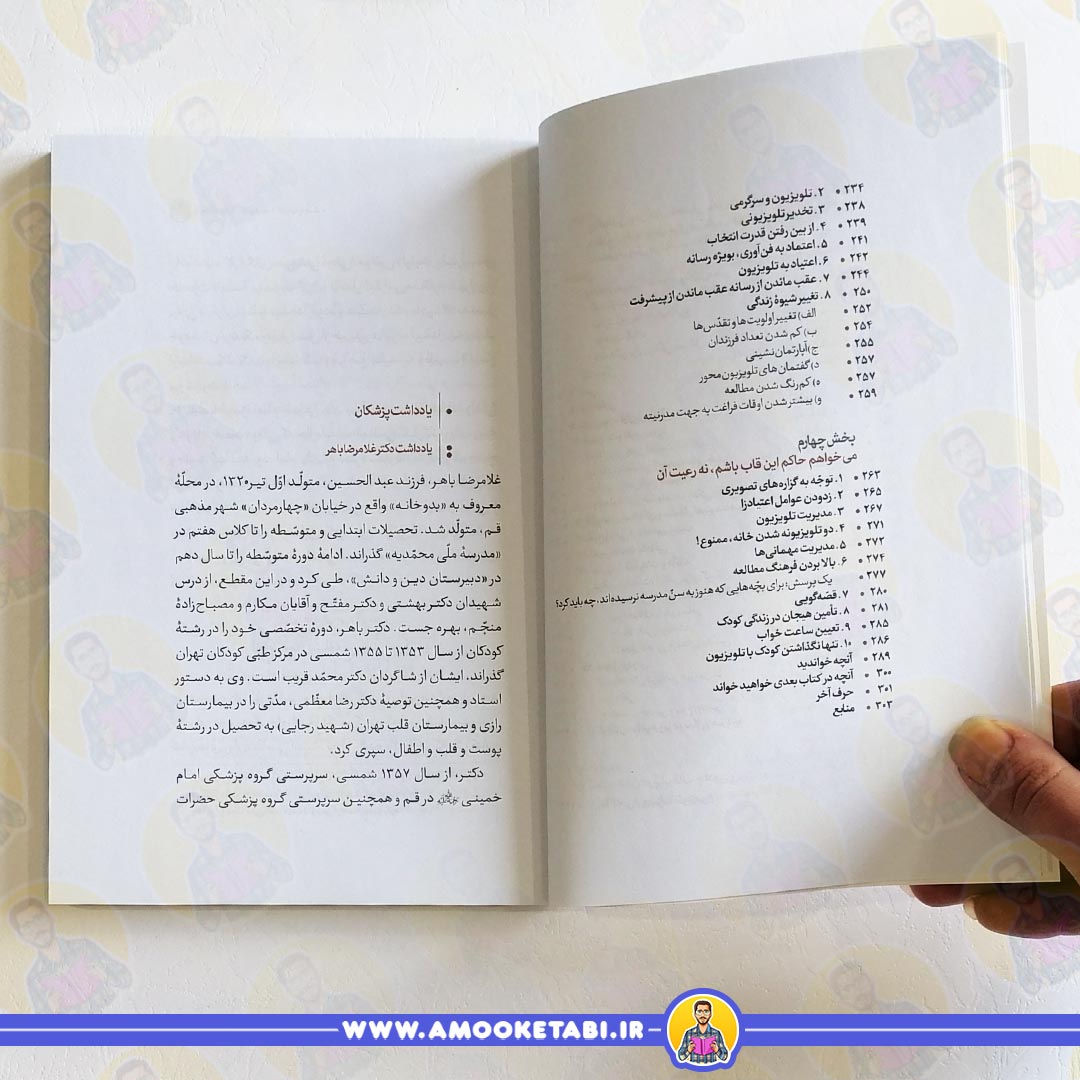 ۲۳۴ • ۲. تلویزیون و سرگرمی
۲۳۸ • ۳. تخدیر تلویزیونی
۲۳۹ • ۴. از بین رفتن قدرت انتخاب
۲۴۱ • ۵. اعتماد به فن‌آوری، بویژه رسانه
۲۴۲ • ۶. اعتیاد به تلویزیون
۲۴۴ • ۷. عقب ماندن از رسانه عقب ماندن از پیشرفت
۲۵۰ • ۸. تغییر شیوهٔ زندگی
۲۵۲ • الف) تغییر اولویت‌ها و تقدّس‌ها
۲۵۴ • ب) کم شدن تعداد فرزندان
۲۵۵ • ج) آپارتمان‌نشینی
۲۵۷ • د) گفتمان‌های تلویزیون‌محور
۲۵۷ • ه) کم‌رنگ شدن مطالعه
۲۵۹ • و) بیشتر شدن اوقات فراغت به جهت مدرنیته
بخش چهارم
می‌خواهم حاکم این قاب باشم، نه رعیت آن
۲۶۳ • ۱. توجّه به گزاره‌های تصویری
۲۶۵ • ۲. زدودن عوامل اعتیادزا
۲۶۷ • ۳. مدیریت تلویزیون
۲۷۱ • ۴. دو تلویزیونه شدن خانه، ممنوع!
۲۷۲ • ۵. مدیریت مهمانی‌ها
۲۷۴ • ۶. بالا بردن فرهنگ مطالعه
۲۷۷ • یک پرسش: برای بچّه‌هایی که هنوز به سنّ مدرسه نرسیده‌اند، چه باید کرد؟
۲۸۰ • ۷. قصّه‌گویی
۲۸۱ • ۸. تأمین هیجان در زندگی کودک
۲۸۵ • ۹. تعیین ساعت خواب
۲۸۶ • ۱۰. تنها نگذاشتن کودک با تلویزیون
۲۸۹ • آنچه خواندید
۳۰۰ • آنچه در کتاب بعدی خواهید خواند
۳۰۱ • حرف آخر
۳۰۳ • منابع
• یادداشت پزشکان
یادداشت دکتر غلامرضا باهر
غلامرضا باهر، فرزند عبدالحسین، متولّد اوّل تیر ۱۳۲۰، در محلّهٔ
معروف به «یدوخانه» واقع در خیابان «چهارمردان» شهر مذهبی
قم، متولّد شد. تحصیلات ابتدایی و متوسّطه را تا کلاس هفتم در
«مدرسهٔ ملّی محمّدیه» گذراند. ادامهٔ دورهٔ متوسّطه را تا سال دهم
در «دبیرستان دین و دانش»، طی کرد و در این مقطع، از درس
شهیدان دکتر بهشتی و دکتر مفتّح و آقایان مکارم و مصباح‌زادهٔ
منجّم، بهره جست. دکتر باهر، دورهٔ تخصّصی خود را در رشتهٔ
کودکان از سال ۱۳۵۳ تا ۱۳۵۵ شمسی در مرکز طبّی کودکان تهران
گذراند. ایشان از شاگردان دکتر محمّد قریب است. وی به دستور
استاد و همچنین توصیهٔ دکتر رضا معظّمی، مدّتی را در بیمارستان
رازی و بیمارستان قلب تهران (شهید رجایی) به تحصیل در رشتهٔ
پوست و قلب و اطفال، سپری کرد.
دکتر، از سال ۱۳۵۷ شمسی، سرپرستی گروه پزشکی امام
خمینی در قم و همچنین سرپرستی گروه پزشکی حضرات
WWW.AMOOKETABI.IR